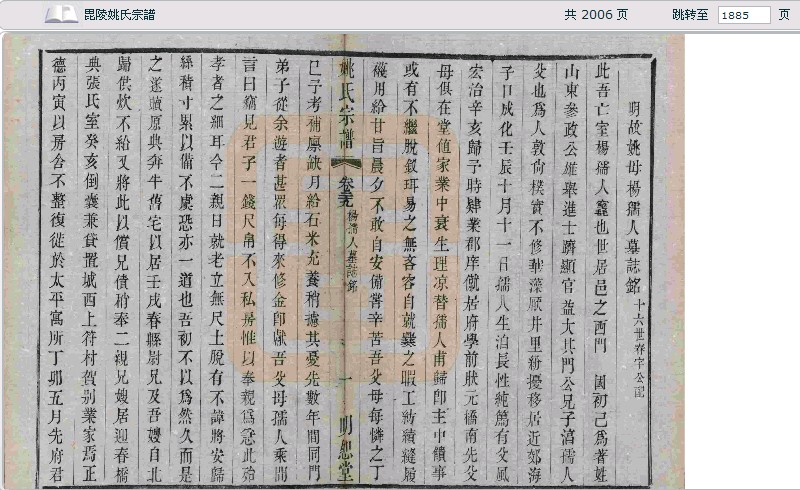 毘陵姚氏宗譜 共 2006 页 跳转至 1885 页
明故姚母楊孺人墓誌銘 十六世春宇公配
此吾亡室楊孺人竁也世居邑之西門 國初已為著姓
山東參政公雄舉進士躋顯官益大其門公兄子滈孺人
父也為人敦尚樸實不修華藻厭井里紛擾移居近郊海
子口成化壬辰十月十一日孺人生洎長性純篤有父風
宏治辛亥歸予時肄業郡庠僦居府學前狀元橋南先父
母俱在堂值家業中衰生理凉替孺人甫歸卽主中饋事
或有不繼脫釵珥易之無吝容自就爨之暇工紡績縫履
襪用給甘旨晨夕不敢自安備嘗辛苦吾父母每憐之丁
姚氏宗譜 卷 楊孺人墓誌銘 一 明恕堂
巳予考補廩缺月給石米充養稍攄其憂先數年間同門
弟子從余遊者甚眾每得束修金卽獻吾父母孺人乘間
言曰竊見君子一錢尺帛不入私房惟以奉親為急此殆
孝者之細耳今二親日就老立無尺土脫有不諱將安歸
絲積寸累以備不虞恐亦一道也吾初不以為然久而是
之遂贖原典奔牛舊宅以居壬戌春縣尉兄及吾嫂自北
歸俱炊不給又將此以償兄債 奉二親兄嫂居迎春橋
典張氏室癸亥倒囊兼貸置城西上符村賀別業家焉正
德丙寅以房舍不整復徙於太平寓所丁卯五月先府君